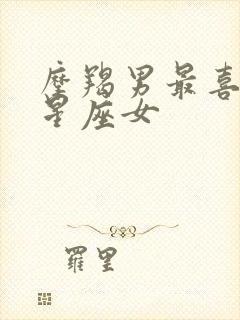 摩羯男最喜
星座女
羅里